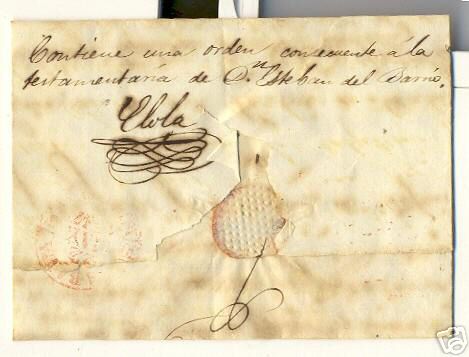 Contiene una orden consecuente á la
testamentaría de D.n Esteban del Barrio.
Elola